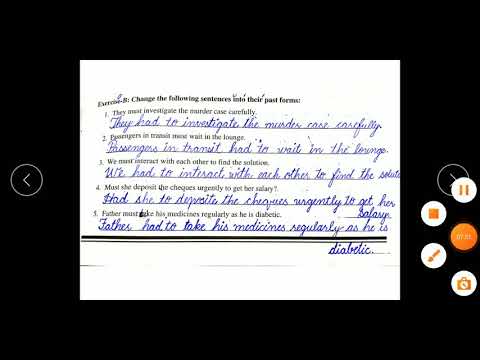 Exercise-B: Change the following sentences into their past forms:
1. They must investigate the murder case carefully.
They had to investigate the murder case carefully.
2. Passengers in transit must wait in the lounge.
Passengers in transit had to wait in the lounge.
3. We must interact with each other to find the solution.
We had to interact with each other to find the solut
4. Must she deposit the cheques urgently to get her salary?.
Had she to deposite the cheques urgently to get her
salary.
5. Father must take his medicines regularly as he is diabetic.
Father had to take his medicines regularly as he is
diabetic.